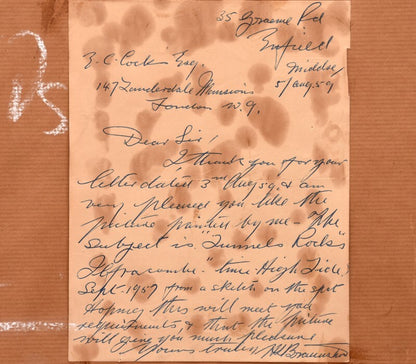 35 Graeme Rd
Enfield
Middsx
5/Aug 59
E. C. Cock Esq.
147 Lauderdale Mansions
London W.9.
Dear Sir!
I thank you for your
letter dated 3rd Aug 59, & am
very pleased you like the
picture painted by me - The
subject is "Tunnels Rocks"
Ilfracombe." time High Tide,
Sept. 1957 from a sketch on the spot
Hoping this will meet your
requirements, & trust the picture
will give you much pleasure
Yours truly,